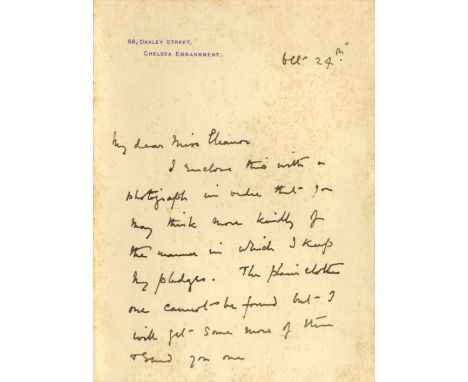 56, OAKLEY STREET,
CHELSEA EMBANKMENT.
Dec 24th
My dear Miss Eleanor
I enclose this with a
photograph in order that you
may think more kindly of
the manner in which I keep
my pledges. The plain clothes
one cannot be found but I
will get some more of them
& send you one